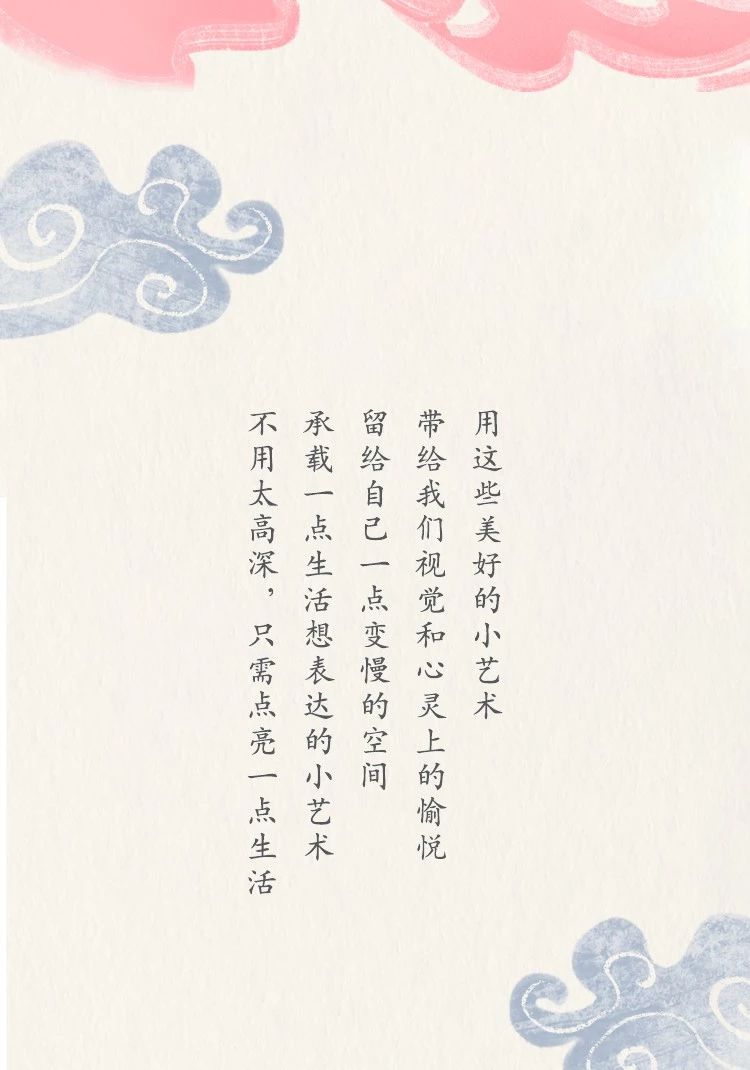 用这些美好的小艺术
带给我们视觉和心灵上的愉悦
留给自己一点变慢的空间
承载一点生活想表达的小艺术
不用太高深，只需点亮一点生活